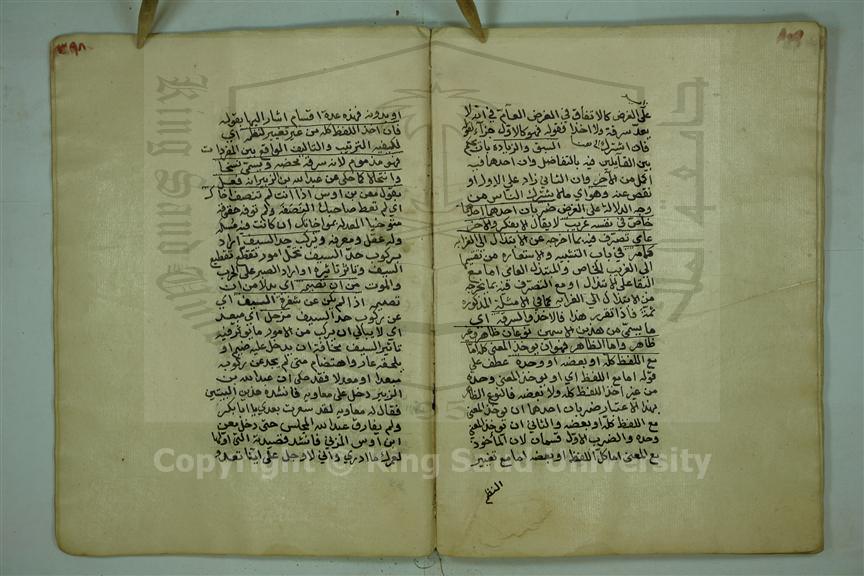 على الغرض كالاتفاق في الغرض العام في انه لا
يعد سرقة ولا اخذا فقوله فهو كالاول جزاء لقوله
فان اشترك السبق والزيادة بان يحكم
بين القايلين فيه بالتفاضل وان احدهما فيه
اكمل من الآخر وان الثاني زاد على الاول او
نقص عنه وهو اي ما لا يشترك الناس من
وجه الدلالة على الغرض ضربان احدهما
خاص في نفسه غريب لا ينال الا بفكر والاخر
عامي تصرف فيه بما اخرجه عن الابتذال الى الغرابة
كما مر في باب التشبيه والاستعارة من تقسيمهما
الى الغريب الخاص والمبتذل العامي اما مع
البقا على الابتذال او مع التصرف فيه بما يخرجه
من الابتذال الى الغرابة كما في الامثلة المذكورة
ثمة فاذا تقرر هذا فالاخذ والسرقة اي
ما يسمى من هذين الاسمين نوعان ظاهر وغير
ظاهر واما الظاهر فهو ان يوخذ المعنى كله اما
مع اللفظ كله او بعضه او وحده عطف على
قوله اما مع اللفظ اي او يوخذ المعنى وحده
من غير اخذ اللفظ كله ولا بعضه فالنوع الظاهر
بهذا الاعتبار ضربان احدهما ان يوخذ المعنى
مع اللفظ كله او بعضه والثاني ان يوخذ المعنى
وحده والضرب الاول قسمان لان الماخوذ
مع المعنى اما كل اللفظ او بعضه اما مع تغيير
النظم
او بدونه فهذه عدة اقسام اشار اليها بقوله
فان اخذ اللفظ كله من غير تغيير لنظمه اي
لكيفية الترتيب والتاليف الواقع بين المفردات
فهو مذموم لانه سرقة محضة ويسمى نسخا
وانتحالا كما حكي عن عبدالله بن الزبير انه فعل
بقول معن بن اوس اذا انت لم تنصف اخاك
اي لم تعط صاحبك النصفة ولم توفه حقوقه
وله عقل ومعرفة ويركب حد السيف اراد
بركوب حد السيف تحمل امور تقطع تقطيع
السيف وتاثر تاثيره او اراد الصبر على الحرب
والموت من ان تضيمه اي بدلا من ان
تضيمه اذا لم يكن عن شفرة السيف اي
عن ركوب حد السيف مزحل اي مبعد
اي لا يبالي ان يركب من الامور ما توثر فيه
تاثير السيف مخافة ان يدخل عليه ضيم او
يلحقه عار واهتضام متى لم يجد عن ركوبه
مبعدا او معدلا فقد حكى ان عبدالله بن
الزبير دخل على معاوية فانشده هذين البيتين
فقال له معاوية لقد شعرت بعدي يا ابا بكر
ولم يفارق عبدالله المجلس حتى دخل معن
ابن اوس المزني فانشد قصيدته التي اولها
لعمرك ما ادري واني لاوجل على اينا تعدو
Copyright © King Saud University
King Saud University
جامعة الملك سعود
1957